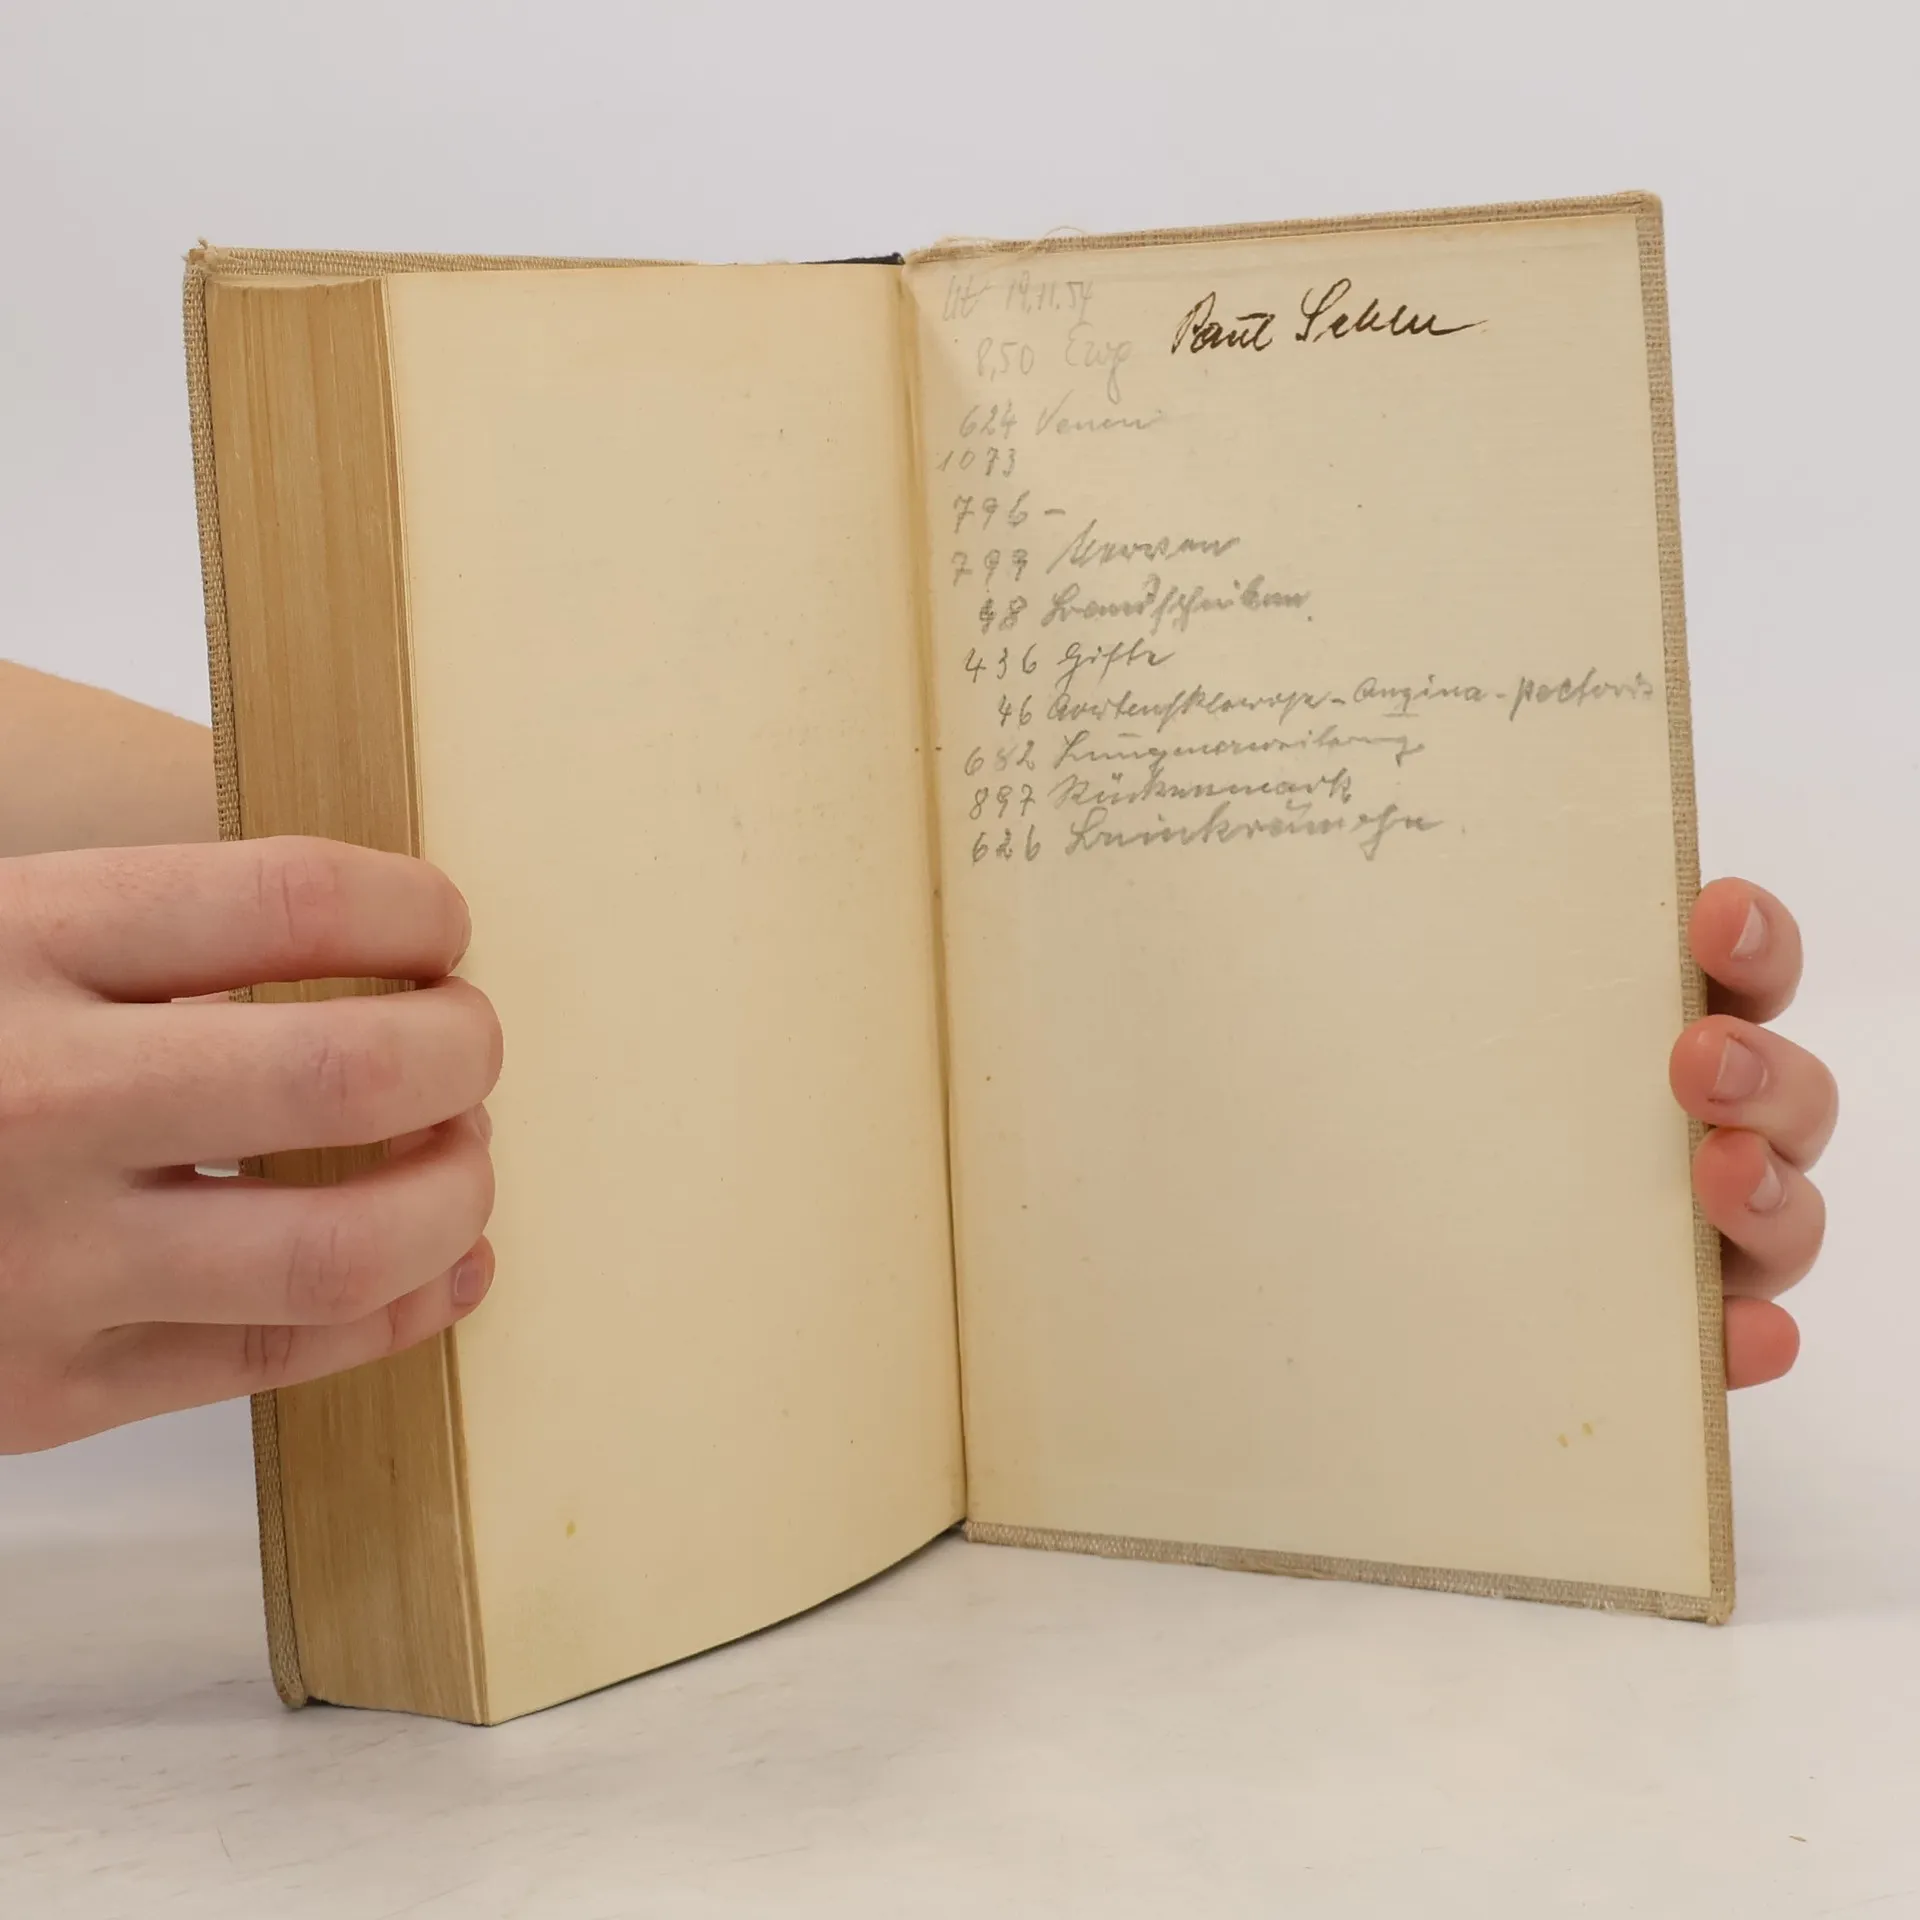 19.11.54
Paul
8,50
624 Venen
1073
796 –
799 Nerven
48 Bandscheiben.
436 Gifte
46 Aortensklerose – Angina – pectoris
682 Lungenerweiterung
897 Rückenmark
626 Beinkrämpfe